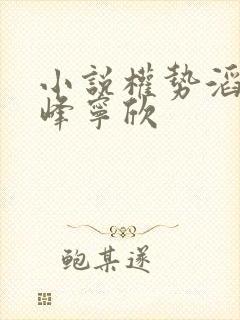 小說權勢滔
峰寧欣
鲍某遂